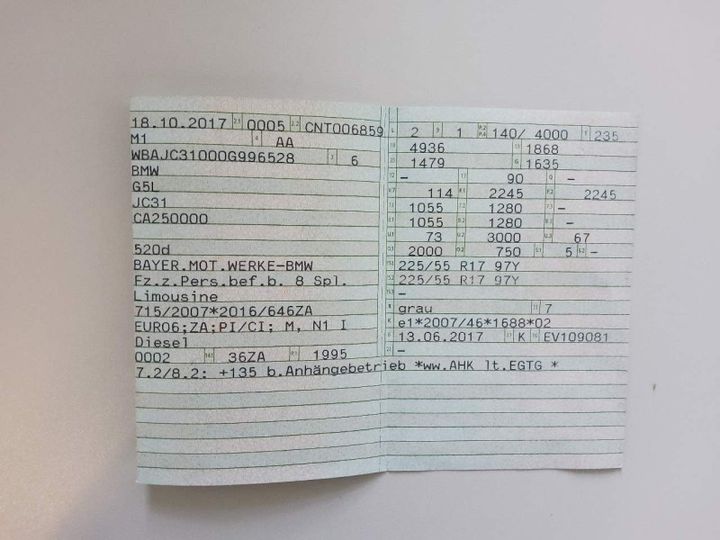 18.10.2017 2.1 0005 2.2 CNT006859
M1 4 AA
WBAJC31000G996528 3 6
BMW
G5L
JC31
CA250000
520d
BAYER.MOT.WERKE-BMW
Fz.z.Pers.bef.b. 8 Spl.
Limousine
715/2007*2016/646ZA
EURO6;ZA;PI/CI; M, N1 I
Diesel
0002 36ZA 1995
7.2/8.2: +135 b.Anhängebetrieb *ww.AHK lt.EGTG *
L 2 9 1 P.2 P.4 140/ 4000 T 235
18 4936 19 1868
20 1479 G 1635
12 - 13 90 Q -
V.7 114 F.1 2245 F.2 2245
7.1 1055 7.2 1280 7.3 -
8.1 1055 8.2 1280 8.3 -
U.1 73 U.2 3000 U.3 67
O.1 2000 O.2 750 S.1 5 S.2 -
15.1 225/55 R17 97Y
15.2 225/55 R17 97Y
15.3 -
R grau 11 7
K e1*2007/46*1688*02
6 13.06.2017 17 K 16 EV109081
21 -